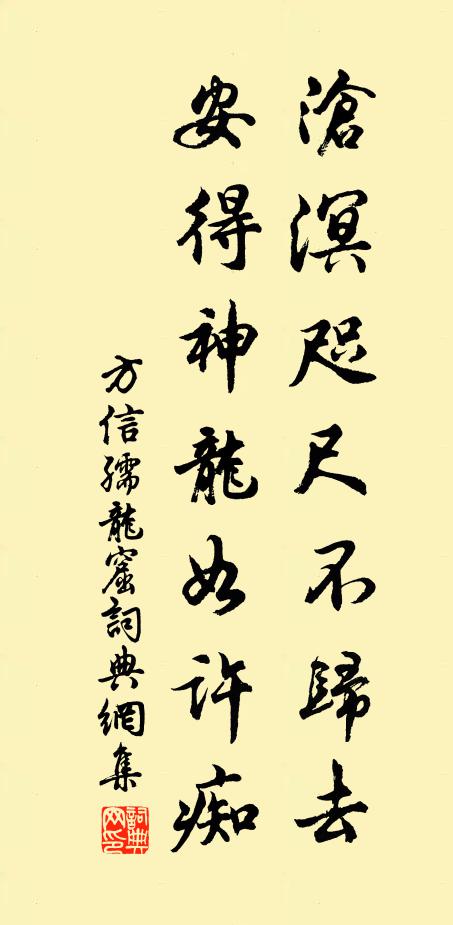 滄溟咫尺不歸去
安得神龍如許痴
方信孺龍窟詞典網集
詞典網印